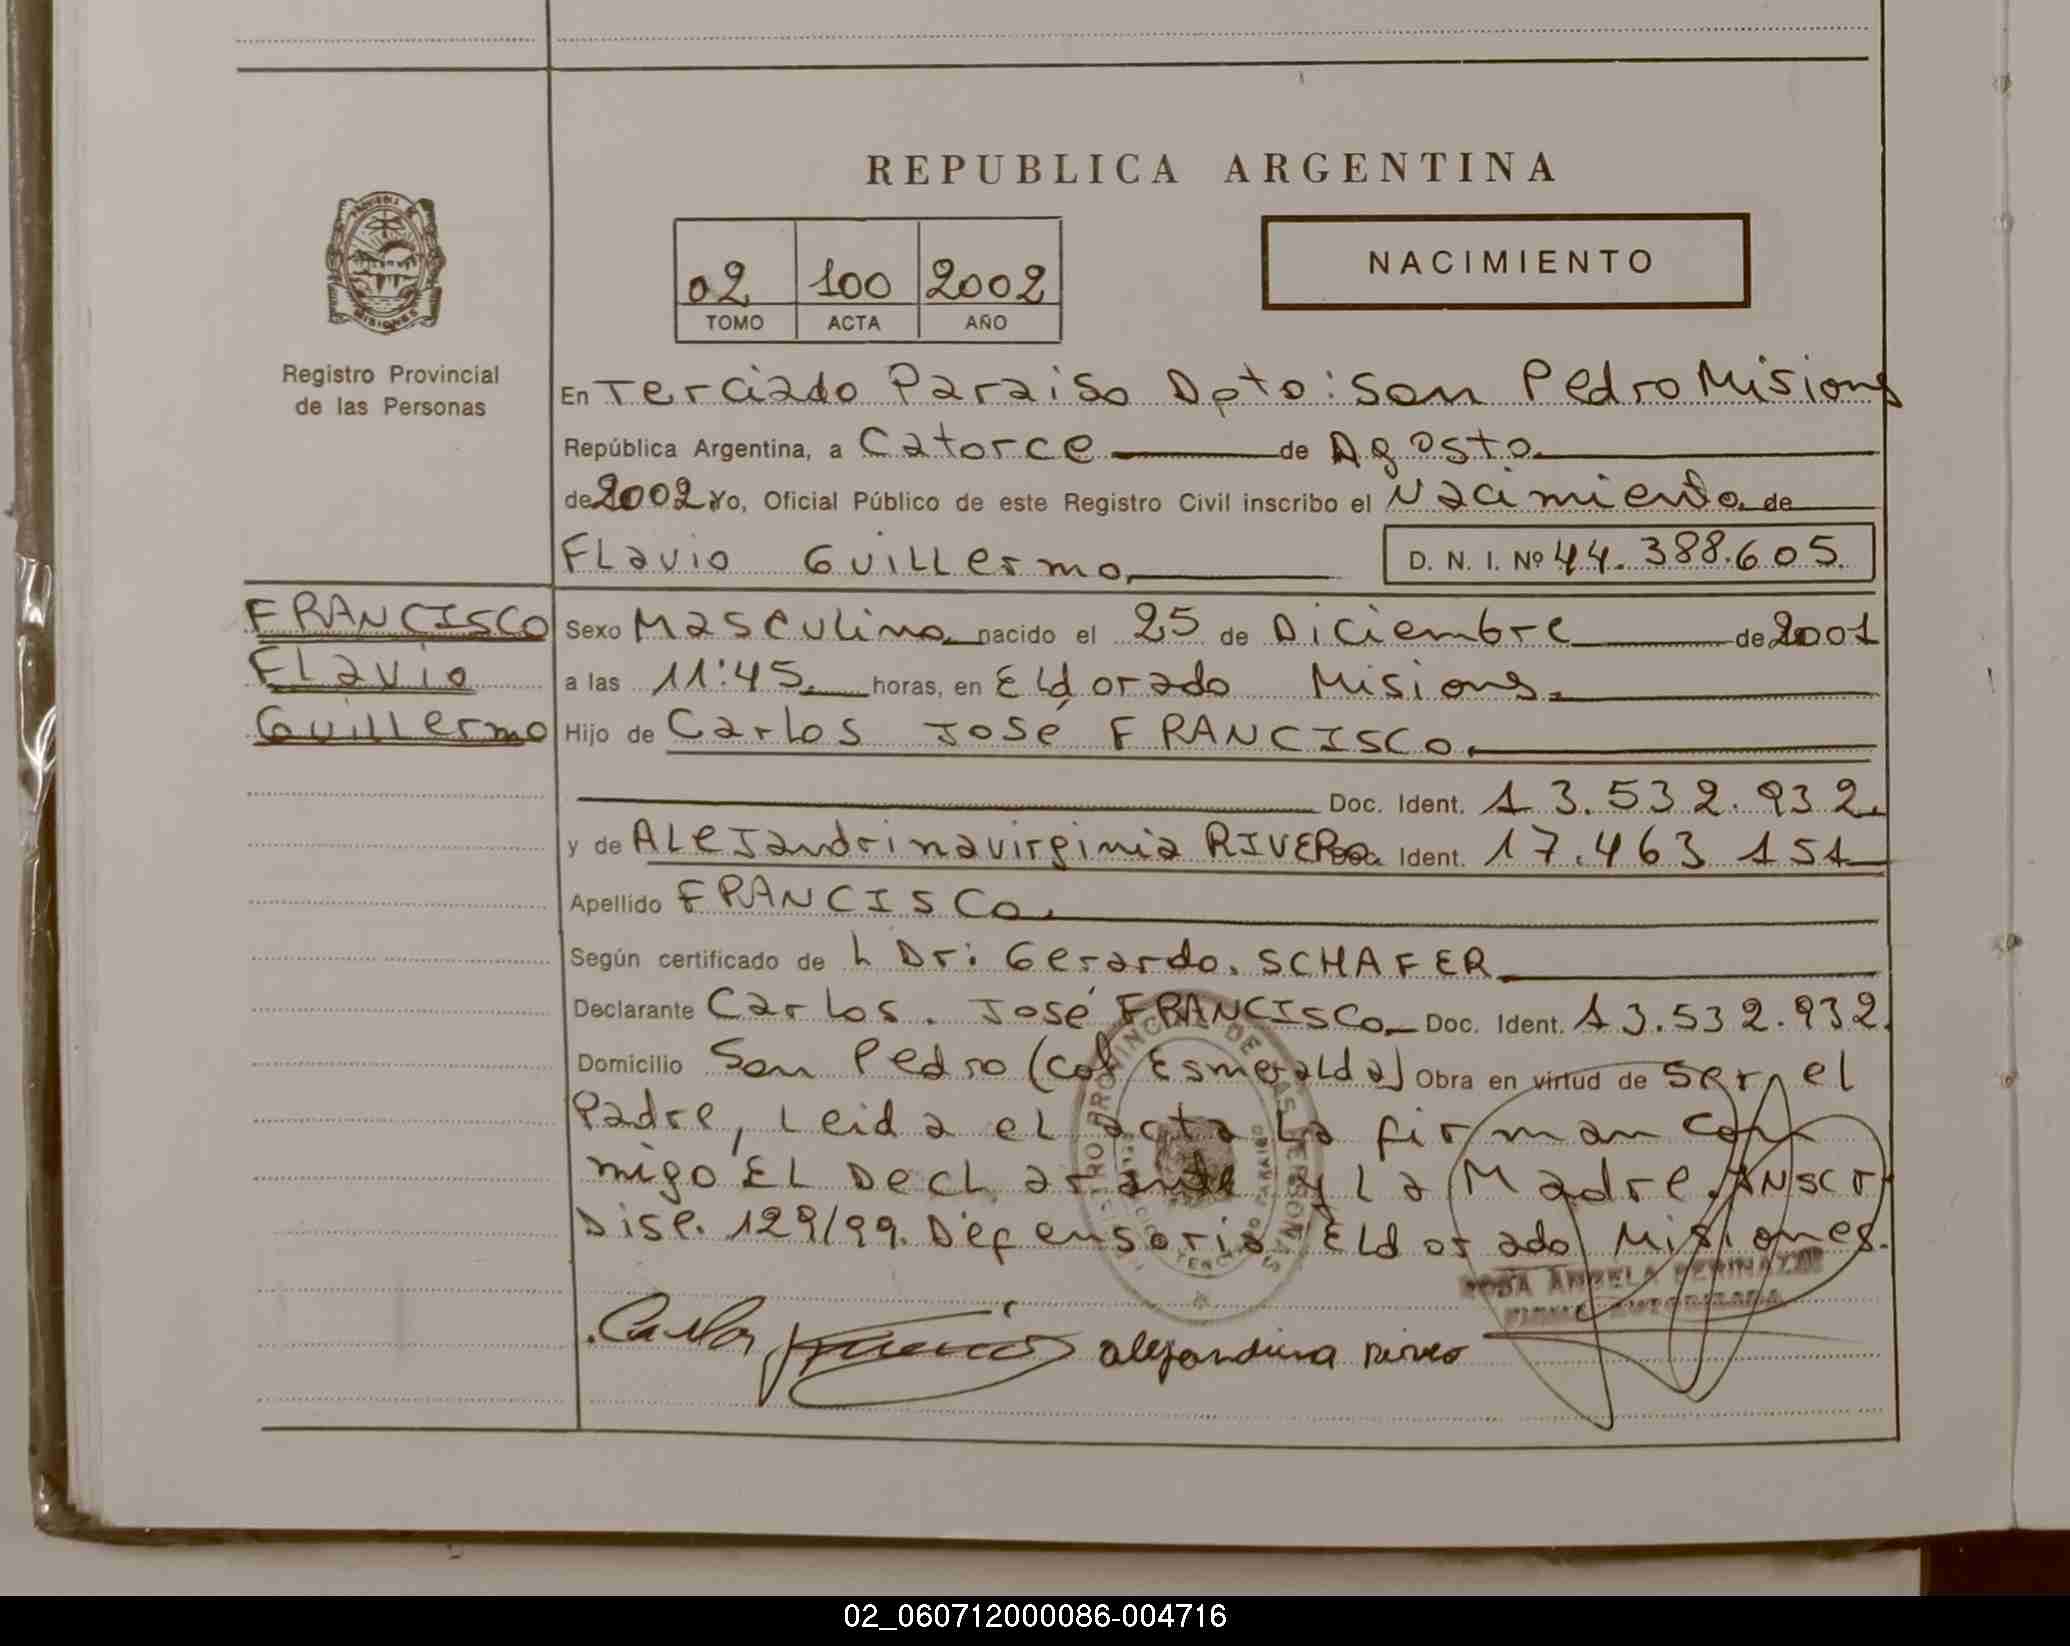 REPUBLICA ARGENTINA
02 100 2002
TOMO ACTA AÑO
NACIMIENTO
PROVINCIA DE
MISIONES
Registro Provincial
de las Personas
En Terciado Paraiso Dpto: San Pedro Misiones
República Argentina, a Catorce de Agosto
de 2002 Yo, Oficial Público de este Registro Civil inscribo el Nacimiento de
Flavio Guillermo, D. N. I. Nº 44.388.605.
FRANCISCO
Flavio
Guillermo
Sexo Masculino nacido el 25 de Diciembre de 2001
a las 11:45. horas, en Eldorado Misiones.
Hijo de Carlos José FRANCISCO.
Doc. Ident. 13.532.932.
y de Alejandrina virginia RIVERO Doc. Ident. 17.463 151
Apellido FRANCISCO.
Según certificado de L Dr: Gerardo. SCHAFER
Declarante Carlos. José FRANCISCO Doc. Ident. 13.532.932.
Domicilio San Pedro (col Esmeralda) Obra en virtud de ser el
Padre, Leida el acta La firman con
migo EL Declarante y La Madre. INSCr.
Disp. 129/99. Defensoria Eldorado Misiones.
ROSA ANGELA
FIRMA AUTORIZADA
Carlos Francisco alejandrina rivero
02_060712000086-004716